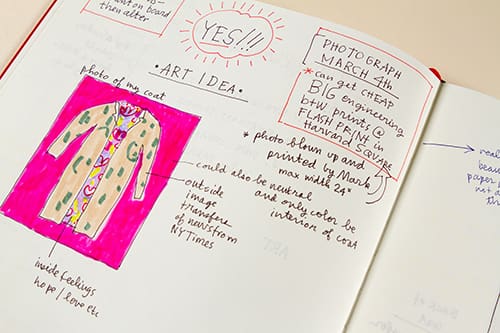 on board
then alter
YES!!!
PHOTOGRAPH
MARCH 4th
* can get CHEAP
BIG engineering
b+w prints @
FLASH PRINT in
Harvard SQUARE
• ART IDEA •
photo of my coat
* photo blown up and
printed by Mark
max width 24"
could also be neutral
and only color be
interior of coat
outside
image
transfers
of news from
NYTimes
inside feelings
hope / love etc
ART